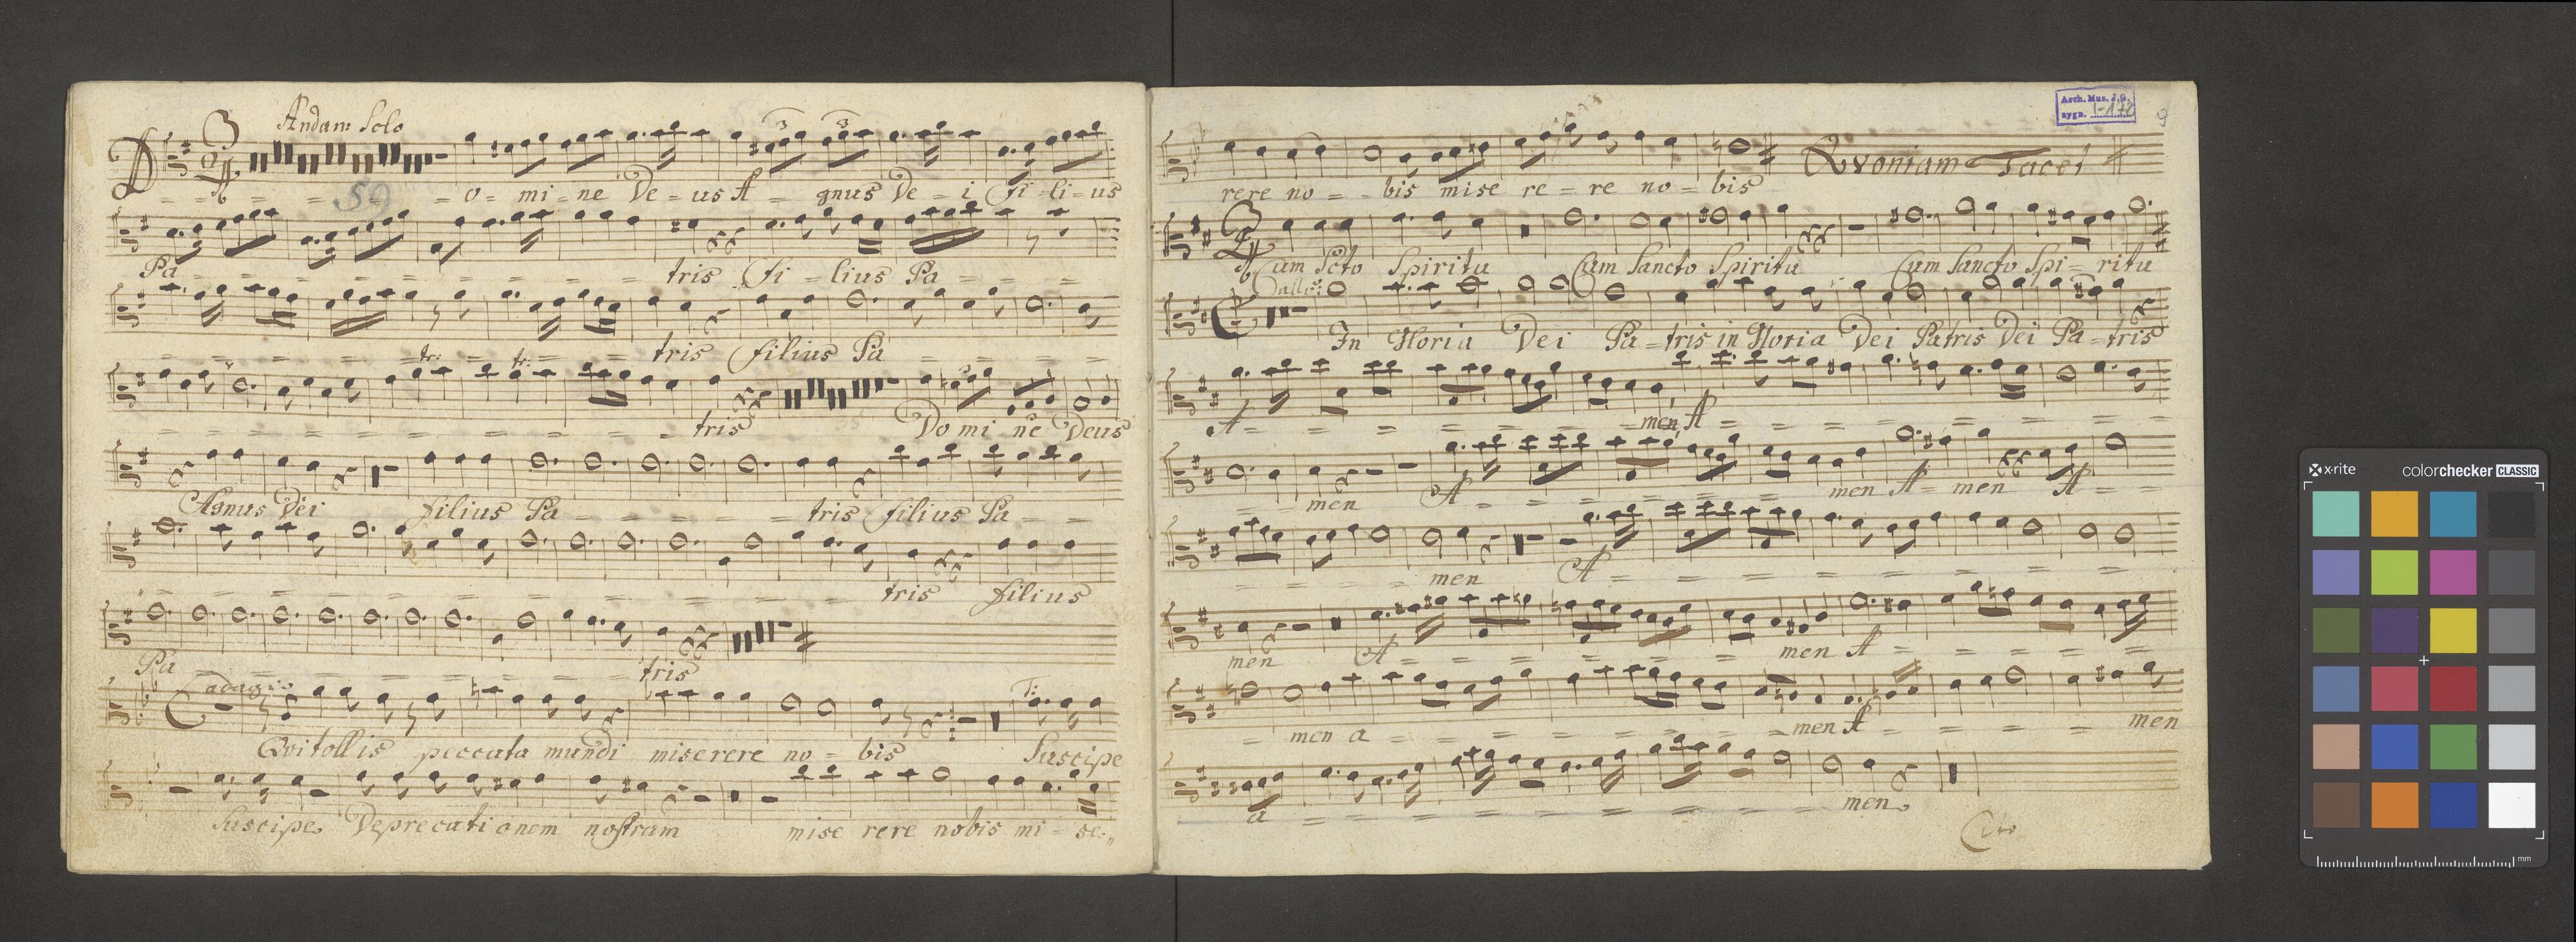 Andam: Solo
Do = mi = ne De = us A = gnus De = i Fi = li = us
59
Pa = = = tris Fi = lius Pa = =
tris filius Pa
tr: tr:
tris Do mi ne Deus
Agnus Dei filius Pa tris filius Pa
tris filius
Pa tris
adag:
Qvi tollis peccata mundi miserere no = bis Suscipe
T:
Suscipe Deprecati onem nostram mise rere nobis mi = se:,,
Arch. Mus. J.G.
sygn. I-178
9
rere no = = bis mise re = re no = bis
Qvoniam Tacet
Cum Scto Spiritu Cum Sancto Spiritu Cum Sancto Spi = ritu
allo:
In Gloria Dei Pa = tris in Gloria Dei Patris Dei Pa = tris
A = = = = men A = = = =
men A = = = men A = men A = =
men A = = = =
men A = = = men A = = =
= men a = = = men A = = = men
a = = = = = men
Cito
x-rite
colorchecker CLASSIC
mm